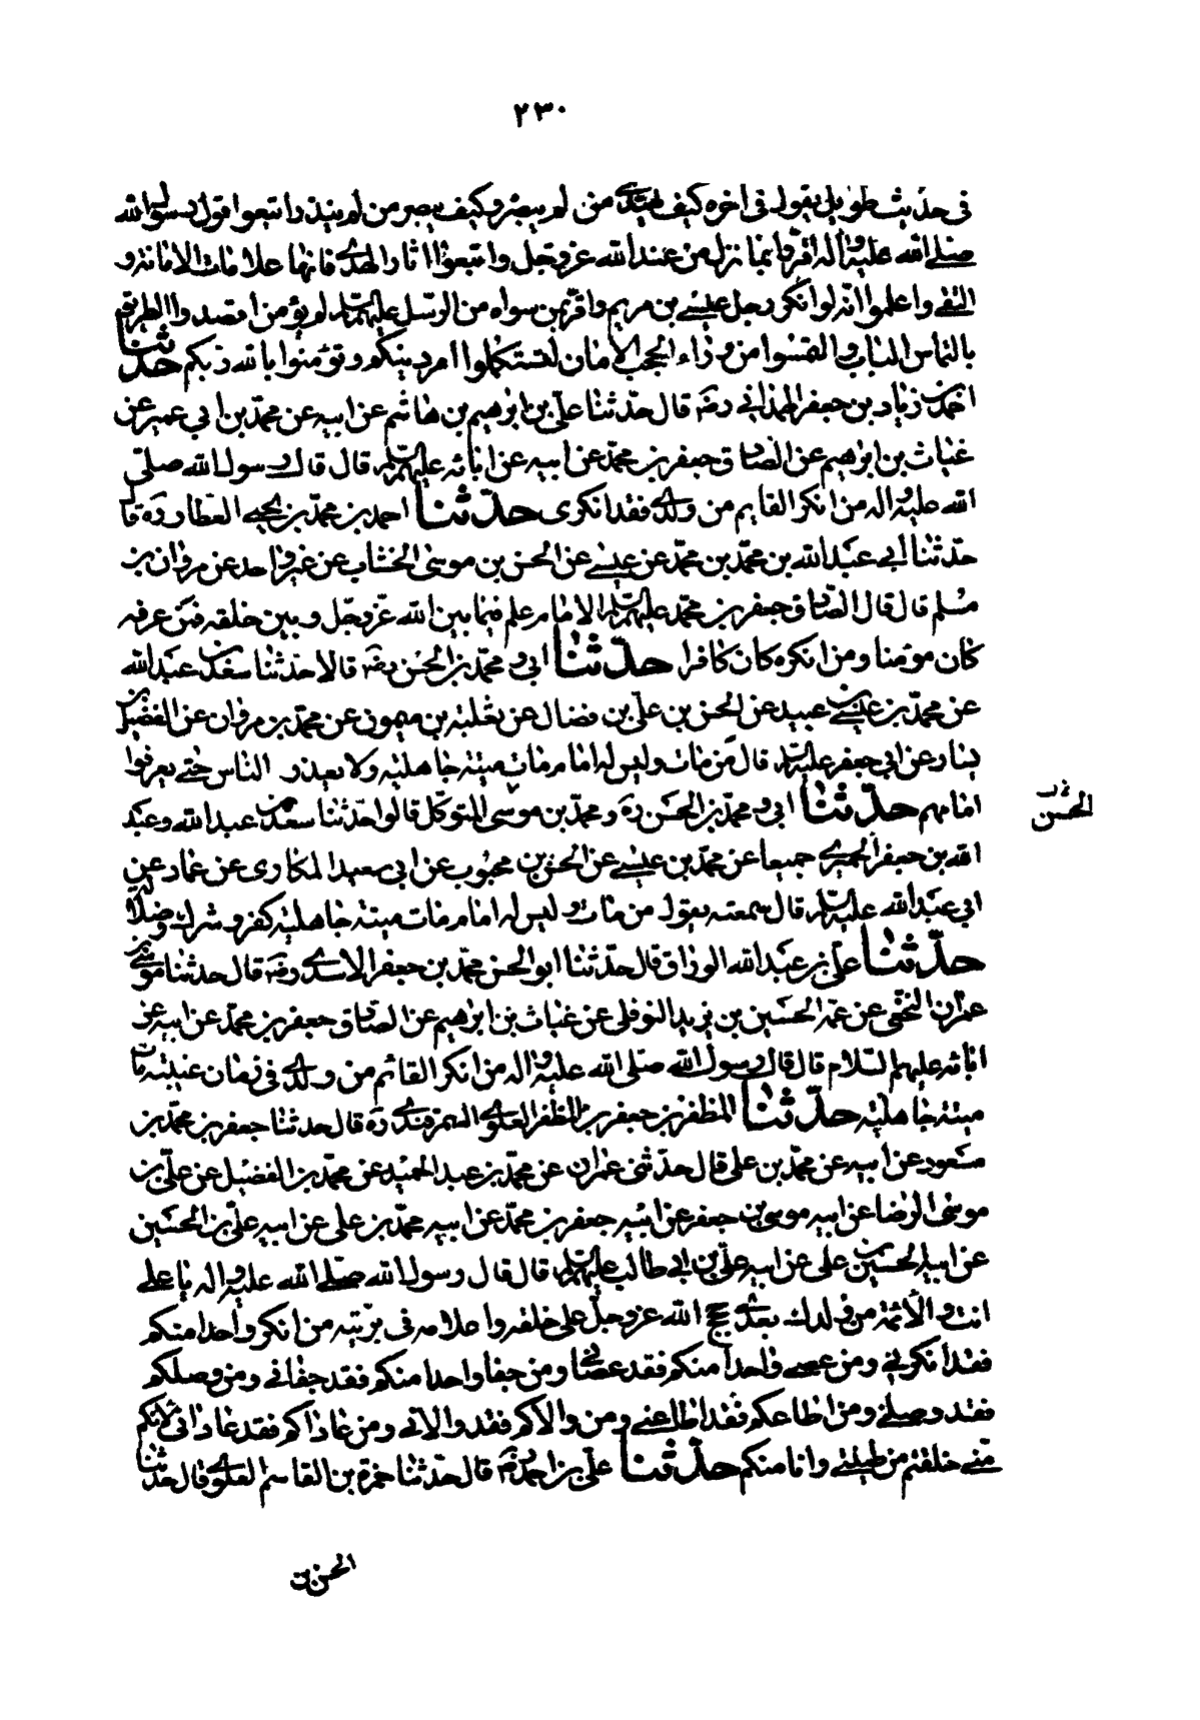 ٢٣٠
فى حديث طويل يقول فى اخره كيف يهتدى من لم يبصر وكيف يبصر من لم ينذر اتبعوا قول رسول الله
صلى الله عليه واله واقروا بما نزل من عند الله عز وجل واتبعوا اثار الهدى فانها علامات الامانة و
التقى واعلموا انه لو انكر رجل عيسى بن مريم واقر بمن سواه من الرسل عليهم السلم لم يؤمن اقصدوا الطريق
بالتماس المنار والتمسوا من وراء الحجب الاثار تستكملوا امر دينكم وتؤمنوا بالله ربكم حدثنا
احمد بن زياد بن جعفر الهمدانى رضه قال حدثنا على بن ابرهيم بن هاشم عن ابيه عن محمد بن ابى عمير عن
غياث بن ابرهيم عن الصادق جعفر بن محمد عن ابيه عن ابائه عليهم السلم قال قال رسول الله صلى
الله عليه واله من انكر القايم من ولدى فقد انكرنى حدثنا احمد بن محمد بن يحيى العطار ره قا
حدثنا ابى عبد الله بن محمد بن محمد عن عيسى عن الحسن بن موسى الخشاب عن غير واحد عن مروان بن
مسلم قال قال الصادق جعفر بن محمد عليهم السلم الامام علم فيما بين الله عز وجل وبين خلقه فمن عرفه
كان مؤمنا ومن انكره كان كافرا حدثنا ابى و محمد بن الحسن رضه قالا حدثنا سعد بن عبد الله
عن محمد بن عيسى بن عبيد عن الحسن بن على بن فضال عن ثعلبة بن ميمون عن محمد بن مروان عن الفضيل بن
يسار عن ابى جعفر عليه السلم قال من مات وليس له امام مات ميتة جاهلية ولا يعذر الناس حتى يعرفوا
امامهم حدثنا ابى و محمد بن الحسن ره و محمد بن موسى المتوكل قالوا حدثنا سعد بن عبد الله وعبد
الحسن بن
الله بن جعفر الحميرى جميعا عن محمد بن عيسى عن الحسن بن محبوب عن ابى سعيد المكارى عن عمار عن
ابى عبد الله عليه السلم قال سمعته يقول من مات وليس له امام مات ميتة جاهلية كفر وشرك وضلالة
حدثنا على بن عبد الله الوراق قال حدثنا ابو الحسن محمد بن جعفر الاسدى رضه قال حدثنا موسى بن
عمران النخعى عن عمه الحسين بن يزيد النوفلى عن غياث بن ابرهيم عن الصادق جعفر بن محمد عن ابيه عن
ابائه عليهم السلام قال قال رسول الله صلى الله عليه واله من انكر القائم من ولدى فى زمان غيبته مات
ميتة جاهلية حدثنا المظفر بن جعفر بن المظفر العلوى السمرقندى ره قال حدثنا جعفر بن محمد بن
مسعود عن ابيه عن محمد بن على قال حدثنى عمران عن محمد بن عبد الحميد عن محمد بن الفضيل عن على بن
موسى الرضا عن ابيه موسى بن جعفر عن ابيه جعفر بن محمد عن ابيه محمد بن على عن ابيه على بن الحسين
عن ابيه الحسين بن على عن ابيه على بن ابى طالب عليهم السلم قال قال رسول الله صلى الله عليه واله يا على
انت والائمة من ولدك بعدى حجج الله عز وجل على خلقه واعلامه فى بريته من انكر واحدا منكم
فقد انكرنى ومن عصى واحدا منكم فقد عصانى ومن جفا واحدا منكم فقد جفانى ومن وصلكم
فقد وصلنى ومن اطاعكم فقد اطاعنى ومن والاكم فقد والانى ومن عاداكم فقد عادانى لانكم
منى خلقتم من طينتى وانا منكم حدثنا على بن احمد رضه قال حدثنا حمزة بن القاسم العلوى قال حدثنا
الحسن بن